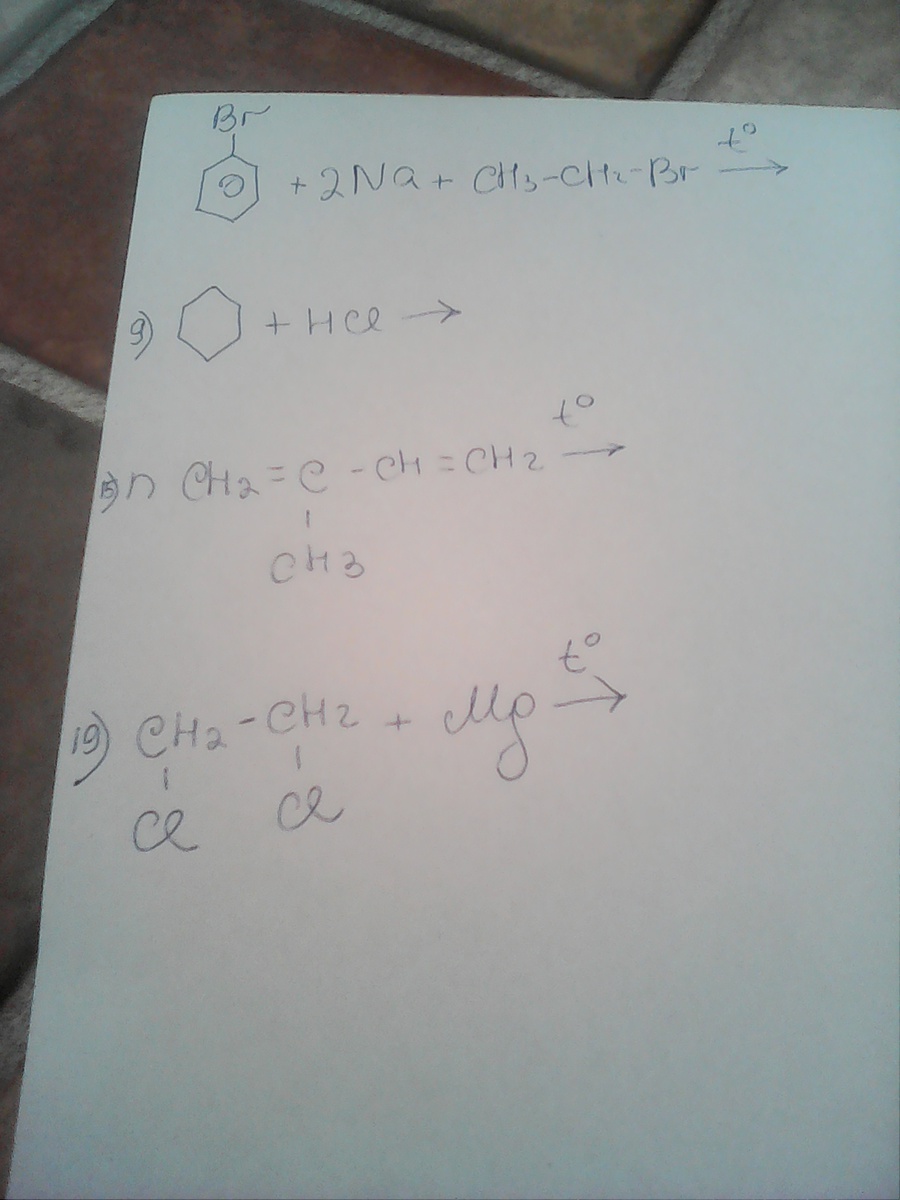 Br
+ 2Na + CH3-CH2-Br t° →
9) + HCl →
n CH2 = C - CH = CH2 t° →
CH3
19) CH2 - CH2 + Mg t° →
Cl Cl